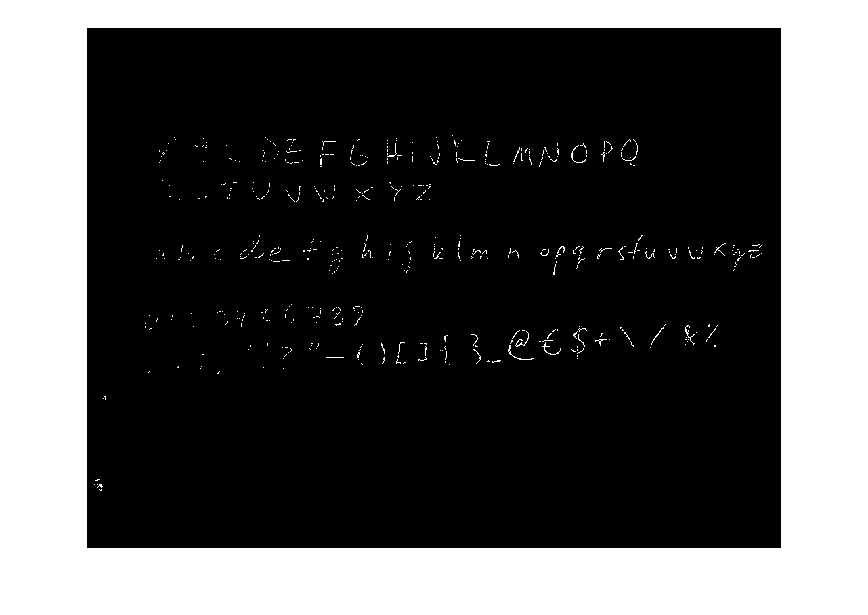 D E F G H I J K L M N O P Q
T U V W X Y Z
c d e f g h i j k l m n o p q r s t u v w x y z
3 4 5 6 7 8 9
? " - ( ) [ ] { } _ @ € $ + \ / & %